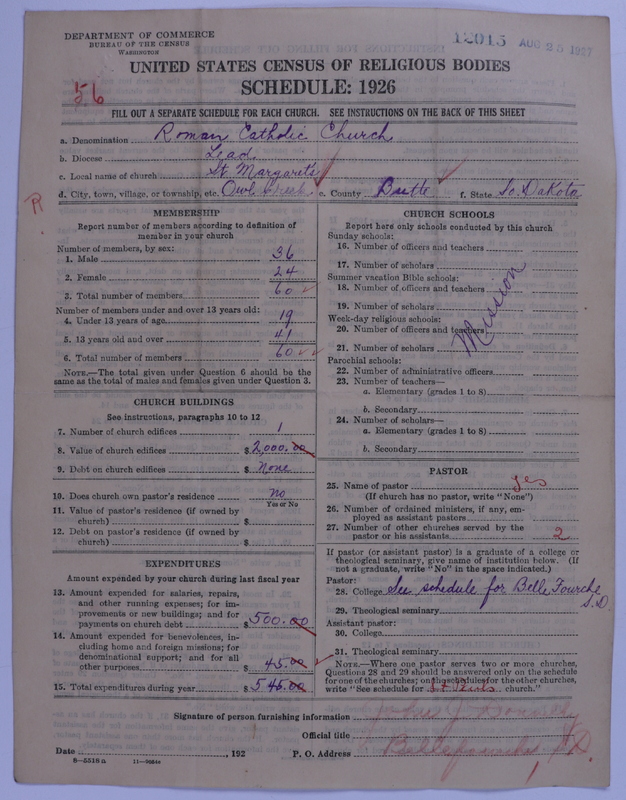 DEPARTMENT OF COMMERCE
BUREAU OF THE CENSUS
WASHINGTON
12015 AUG 25 1927
UNITED STATES CENSUS OF RELIGIOUS BODIES
SCHEDULE: 1926
56
FILL OUT A SEPARATE SCHEDULE FOR EACH CHURCH. SEE INSTRUCTIONS ON THE BACK OF THIS SHEET
a. Denomination Roman Catholic Church
b. Diocese Lead
c. Local name of church St. Margaret's
d. City, town, village, or township, etc. Owl Creek e. County Butte f. State So. Dakota
R
MEMBERSHIP
Report number of members according to definition of
member in your church
Number of members, by sex:
1. Male 36
2. Female 24
3. Total number of members 60
Number of members under and over 13 years old:
4. Under 13 years of age 19
5. 13 years old and over 41
6. Total number of members 60
NOTE.—The total given under Question 6 should be the
same as the total of males and females given under Question 3.
CHURCH BUILDINGS
See instructions, paragraphs 10 to 12
7. Number of church edifices 1
8. Value of church edifices $ 2,000.00
9. Debt on church edifices $ None
10. Does church own pastor's residence No
Yes or No
11. Value of pastor's residence (if owned by
church) $
12. Debt on pastor's residence (if owned by
church) $
EXPENDITURES
Amount expended by your church during last fiscal year
13. Amount expended for salaries, repairs,
and other running expenses; for im-
provements or new buildings; and for
payments on church debt $ 500.00
14. Amount expended for benevolences, in-
cluding home and foreign missions; for
denominational support; and for all
other purposes $ 45.00
15. Total expenditures during year $ 545.00
CHURCH SCHOOLS
Report here only schools conducted by this church
Sunday schools:
16. Number of officers and teachers
17. Number of scholars
Summer vacation Bible schools:
18. Number of officers and teachers
19. Number of scholars
Week-day religious schools:
20. Number of officers and teachers
21. Number of scholars
Mission
Parochial schools:
22. Number of administrative officers
23. Number of teachers—
a. Elementary (grades 1 to 8)
b. Secondary
24. Number of scholars—
a. Elementary (grades 1 to 8)
b. Secondary
PASTOR
25. Name of pastor yes
(If church has no pastor, write "None")
26. Number of ordained ministers, if any, em-
ployed as assistant pastors
27. Number of other churches served by the
pastor or his assistants 2
If pastor (or assistant pastor) is a graduate of a college or
theological seminary, give name of institution below. (If
not a graduate, write "No" in the space indicated.)
Pastor:
28. College See schedule for Belle Fourche
S.D.
29. Theological seminary
Assistant pastor:
30. College
31. Theological seminary
NOTE.—Where one pastor serves two or more churches,
Questions 28 and 29 should be answered only on the schedule
for one of the churches; on the schedules for the other churches,
write "See schedule for church."
Signature of person furnishing information
Official title
Date , 192 P. O. Address Bellefourche S.D.
8—5518 a